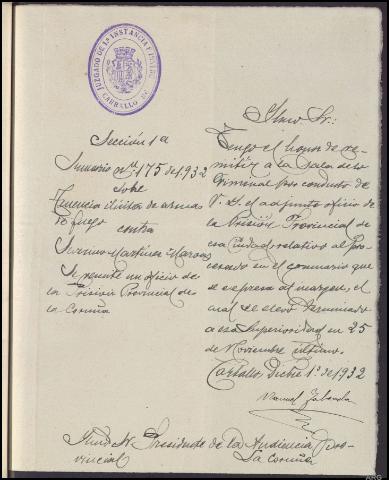 JUZGADO DE 1ª INSTANCIA E INSTRUC
CARBALLO
Sección 1ª
Sumario nº 175 de 1932
sobre
Tenencia ilícita de armas
de fuego
contra
Martínez
Se remite un oficio de
la Prisión Provincial de
La Coruña
Ilmo Sr:
Tengo el honor de re-
mitir a la Sala de lo
Criminal por conducto de
V. I. el adjunto oficio de
la Prisión Provincial de
esa Ciudad relativo al pro-
cesado en el sumario que
se expresa al margen, el
cual se elevó terminado
a esa Superioridad en 25
de Noviembre último.
Carballo, Dicbre 1º de 1932
Manuel
Ilmo Sr. Presidente de la Audiencia Pro-
vincial
La Coruña